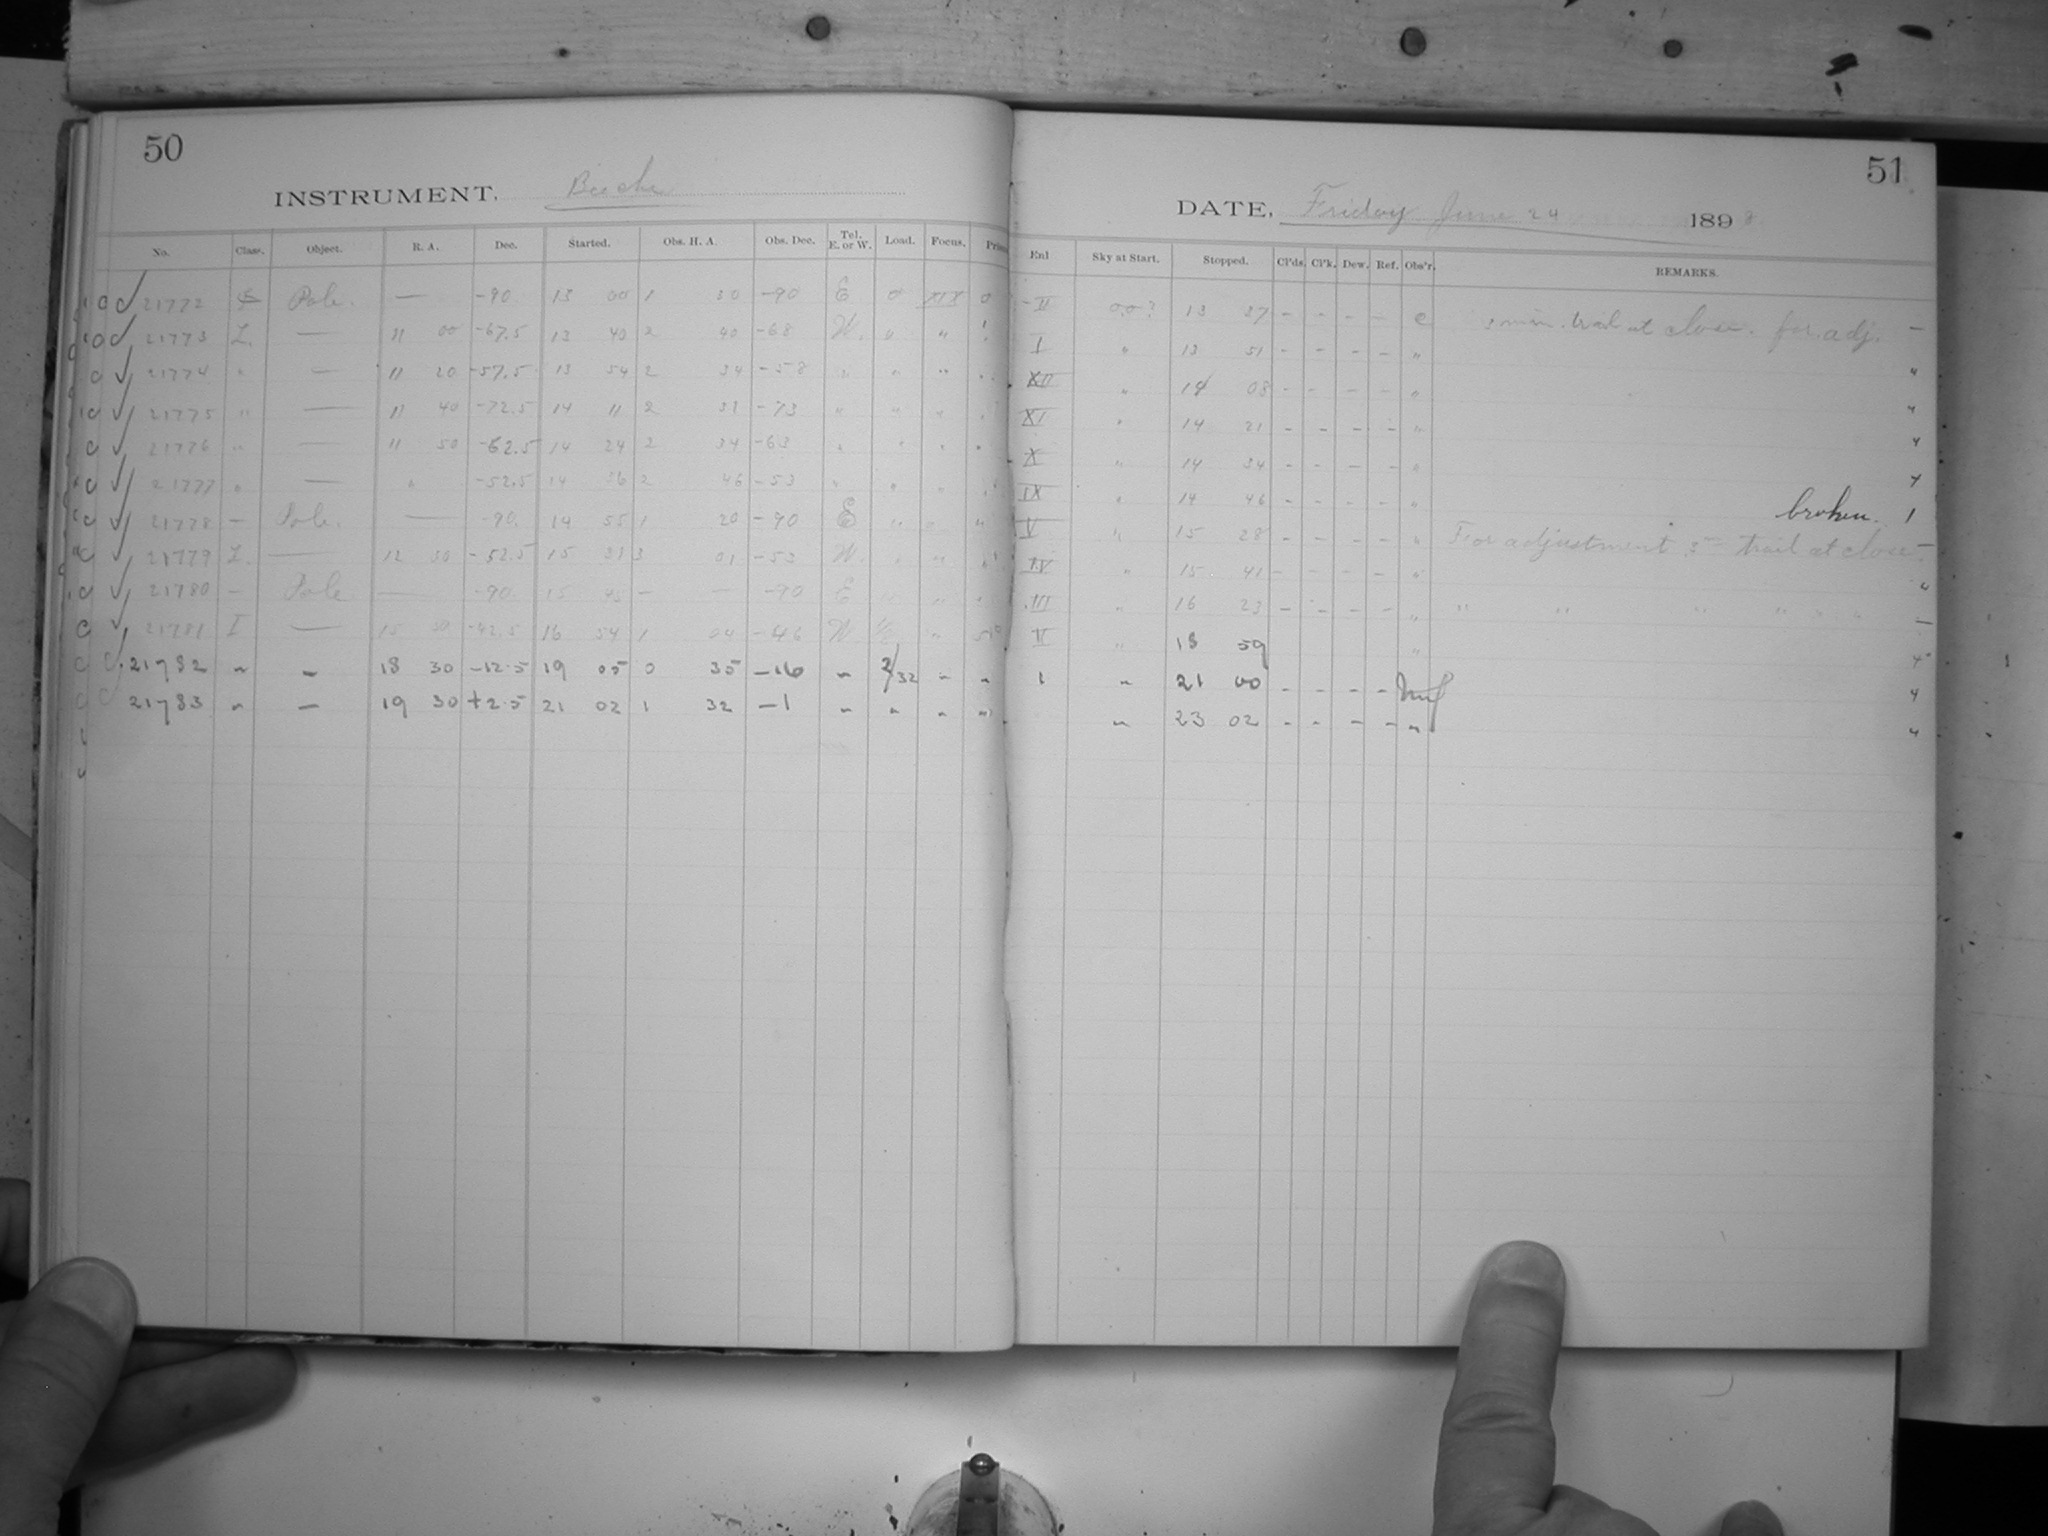 50
INSTRUMENT, Bache
No. Class. Object. R. A. Dec. Started. Obs. H. A. Obs. Dec. Tel. E. or W. Load. Focus.
21772 Pole. — -90 13 00 1 30 -90 E 0 XIX 0
21773 L. — 11 00 -67.5 13 40 2 40 -68 W. 0 "
21774 " — 11 20 -57.5 13 54 2 34 -58 " " "
21775 " — 11 40 -72.5 14 11 2 31 -73 " " "
21776 " — 11 50 -62.5 14 24 2 34 -63 " " "
21777 " — " -52.5 14 36 2 46 -53 " " "
21778 — Pole. — -90. 14 55 1 20 -90 E "
21779 L. — 12 30 -52.5 15 31 3 01 -53 W. " "
21780 — Pole — -90 15 45 — — -90 E "
21781 I — 15 50 -42.5 16 54 1 04 -46 W. "
21782 " — 18 30 -12.5 19 05 0 35 -16 " 2/32 " "
21783 " — 19 30 +2.5 21 02 1 32 -1 " " " "
51
DATE, Friday June 24 1898
Enl Sky at Start. Stopped. Cl'ds. Cl'k. Dew. Ref. Obs'r. REMARKS.
13 37 - - - - e 3 min. trail at close. for adj. —
I " 13 51 - - - - " "
XII " 14 08 - - - - " "
XI " 14 21 - - - - " "
X " 14 34 - - - - "
IX " 14 46 - - - - " broken. 1
V " 15 28 - - - - " For adjustment 3m trail at close —
IV " 15 41 - - - - " "
III " 16 23 - - - - " " " " " —
V " 18 59 "
1 " 21 00 - - - - "
" 23 02 - - - - " "